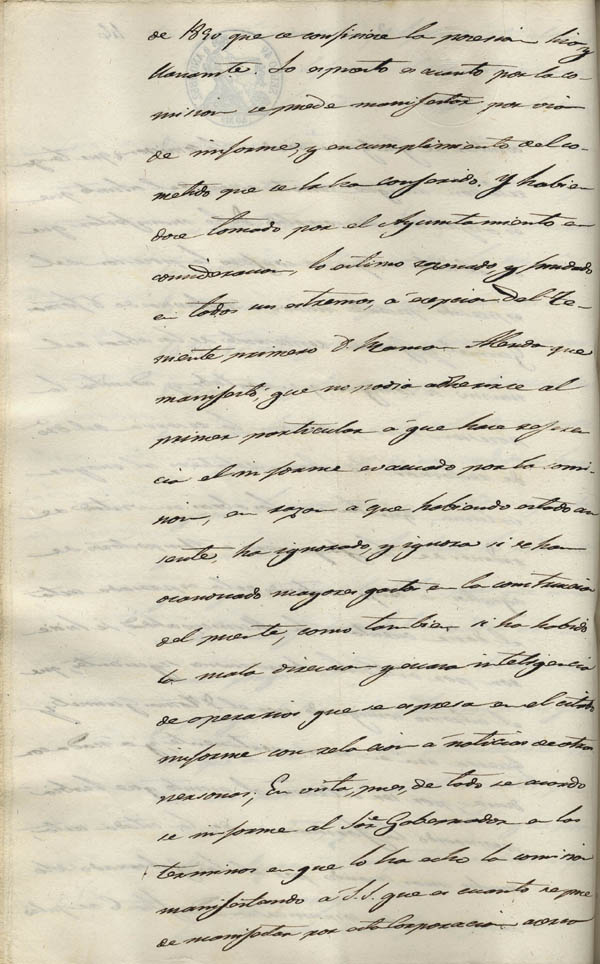 de 1830 que se confiriere la
llanamte. Lo espuesto es cuanto por la co-
mision se puede manifestar por via
de informe, y en cumplimiento del co-
metido que se le ha conferido. Y habien
dose tomado por el Ayuntamiento en
consideracion, lo estimo razonado, y fundado
en todos sus estremos, á escepcion del Te-
niente primero D. Ramon que
manifestó, que no podia adherirse al
primer particular á que hace referen
cia el informe evacuado por la comi
sion, en razon á que habiendo estado au
sente, ha ignorado, y ignora si se han
ocasionado mayores gastos en la construccion
del puente, como tambien si ha habido
la mala direccion y escasa inteligencia
de operarios, que se espresa en el citado
informe con relacion á noticias de otras
personas; En vista, pues, de todo se acordó
se informe al Sor. Gobernador en los
terminos en que lo ha echo la comision
manifestando á S.S. que es cuanto se pue
de manifestar por esta Corporacion acerca